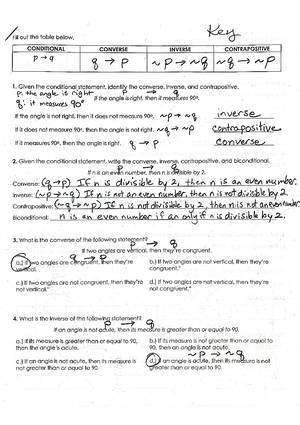 Key
Fill out the table below.
CONDITIONAL CONVERSE INVERSE CONTRAPOSITIVE
p → q q → p ~p → ~q ~q → ~p
1. Given the conditional statement, identify the converse, inverse, and contrapositive.
p: the angle is right p → q
q: it measures 90° If the angle is right, then it measures 90º.
If the angle is not right, then it does not measure 90º. ~p → ~q inverse
If it does not measure 90º, then the angle is not right. ~q → ~p contrapositive
If it measures 90º, then the angle is right. q → p converse
2. Given the conditional statement, write the converse, inverse, contrapositive, and biconditional.
p → q
If n is an even number, then n is divisible by 2.
Converse: (q→p) If n is divisible by 2, then n is an even number.
Inverse: (~p→~q) If n is not an even number, then n is not divisible by 2
Contrapositive: (~q→~p) If n is not divisible by 2, then n is not an even number.
Biconditional: n is an even number if an only if n is divisible by 2.
3. What is the converse of the following statement? p → q
If two angles are vertical, then they're congruent.
q → p
a.) If two angles are congruent, then they're vertical.
b.) If two angles are not vertical, then they're not congruent."
c.) If two angles are not congruent, then they're not vertical."
d.) If two angles are vertical, then they're not congruent."
4. What is the inverse of the following statement?
p → q
If an angle is not acute, then its measure is greater than or equal to 90.
a.) If its measure is greater than or equal to 90, then the angle is acute.
b.) If its measure is not greater than or equal to 90, then an angle is not acute.
~p → ~q
c.) If an angle is not acute, then its measure is not greater than or equal to 90.
d.) If an angle is acute, then its measure is not greater than or equal to 90.